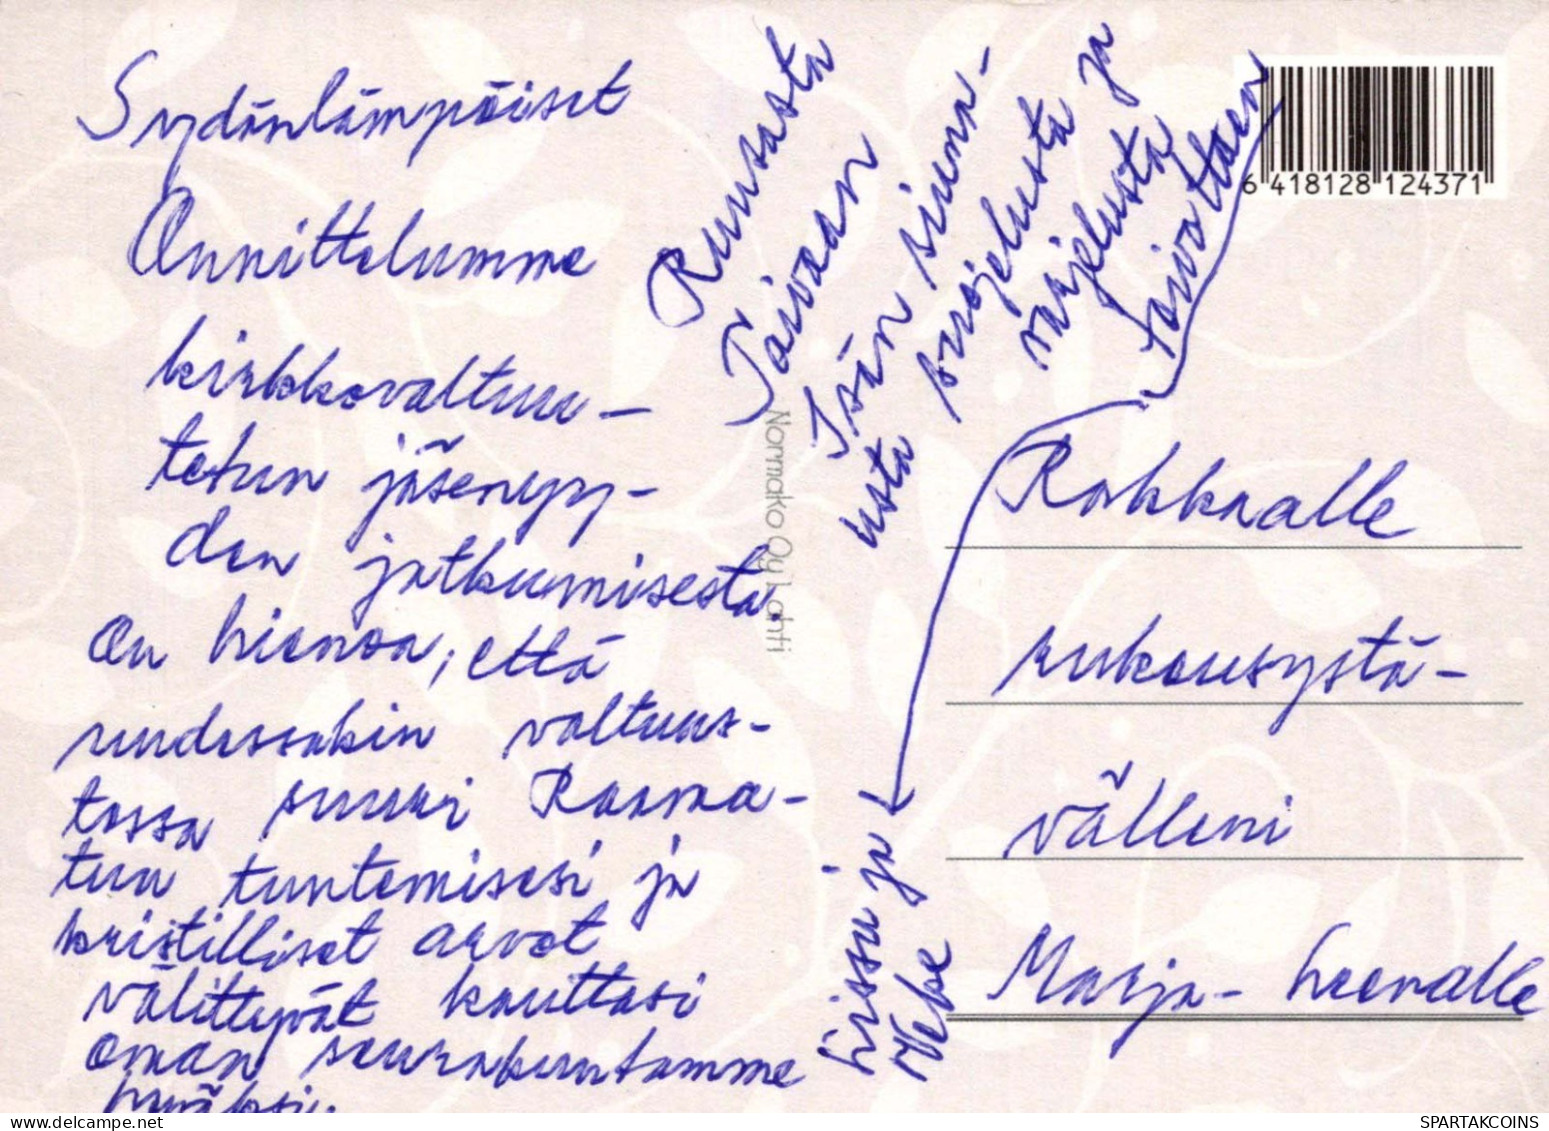 Sydänlämpöiset
Onnittelumme
kirkkovaltuu-
tetun jäsenyy-
den jatkumisesta.
On hienoa, että
uudessakin valtuus-
tossa suuri Raama-
tun tuntemisesi ja
kristilliset arvot
välittyvät kauttasi
oman seurakuntamme
hyväksi.
Runsasta
Taivaan
Isän siuna-
usta suojelusta ja
varjelusta
toivottaen
Irissu ja
Veke
Rakkaalle
rukousystä-
välleni
Marja-Leenalle
Normako Oy Lahti
6 418128 124371
SPARTAKCOINS
delcampe.net